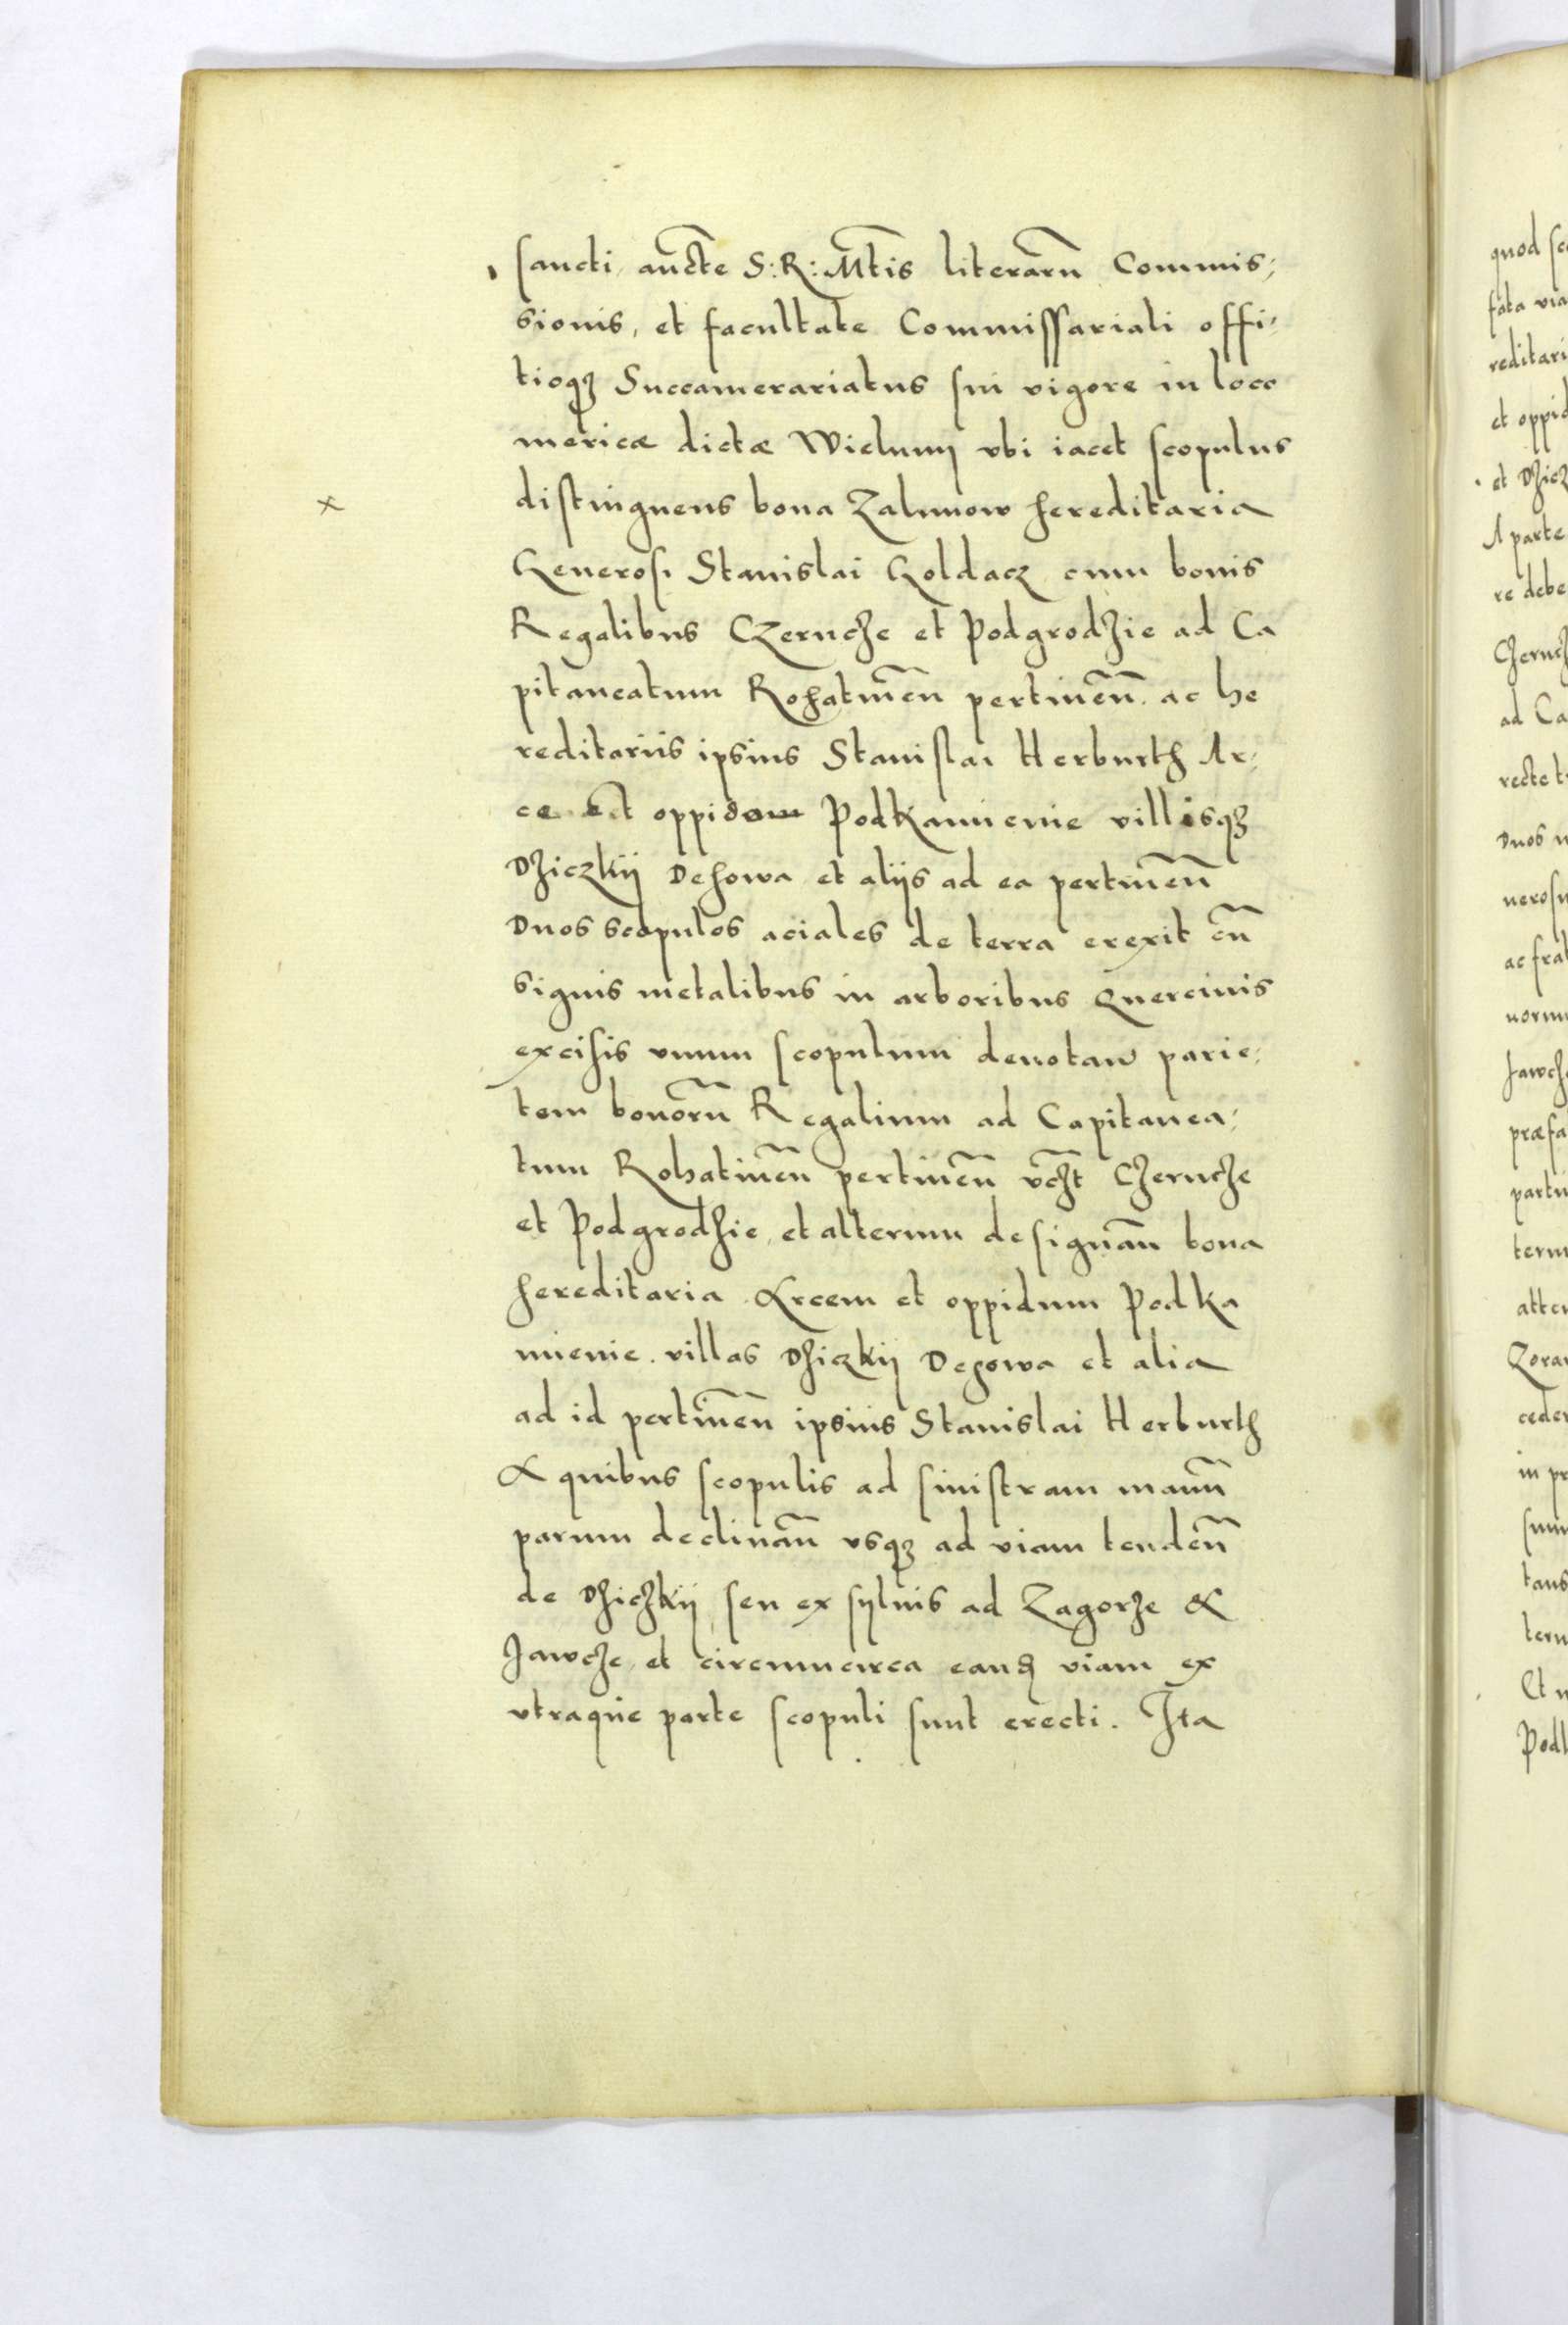 sancti, auctte S: R: Mttis literarū Commis⸗
sionis, et facultate Commissariali offi⸗
tioqȝ Succamerariatus sui vigore in loco
mericæ dictæ Wielumij vbi iacet scopulus
x
distinguens bona Zalunow hereditaria
Generosi Stanislai Goldacz cum bonis
Regalibus Czerncże et Podgrodżie ad Ca
pitaneatum Rohatineñ pertineñ. ac he
reditariis ipsius Stanislai Herburth Ar⸗
ce et oppido Podkamienie villisqȝ
Dżiczkij Dehowa et aliis ad ea pertineñ
Duos scopulos aciales de terra erexit cū
signis metalibus in arboribus quercinis
excisis vnum scopulum denotan parie⸗
tem bonorū Regalium ad Capitanea⸗
tum Rohatineñ pertineñ vcżt Cżerncże
et Podgrodżie, et alterum designañ bona
hereditaria Arcem et oppidum Podka
mienie. villas Dżiczkij Dehowa et alia
ad id pertineñ ipsius Stanislai Herburth
A quibus scopulis ad sinistram manū
parum declinañ vsqȝ ad viam tendeñ
de Dżicżkij seu ex syluis ad Zagorże &
Jawcże, et circumcirca eand viam ex
vtraque parte scopuli sunt erecti. Ita
quod
fata via
reditari
et oppid
et Dżicz
A parte
re debe
Cżerncż
ad Ca
recte t
Duos
nerosu
ac frat
Jawcż
præfa
tern
in pr
Podk